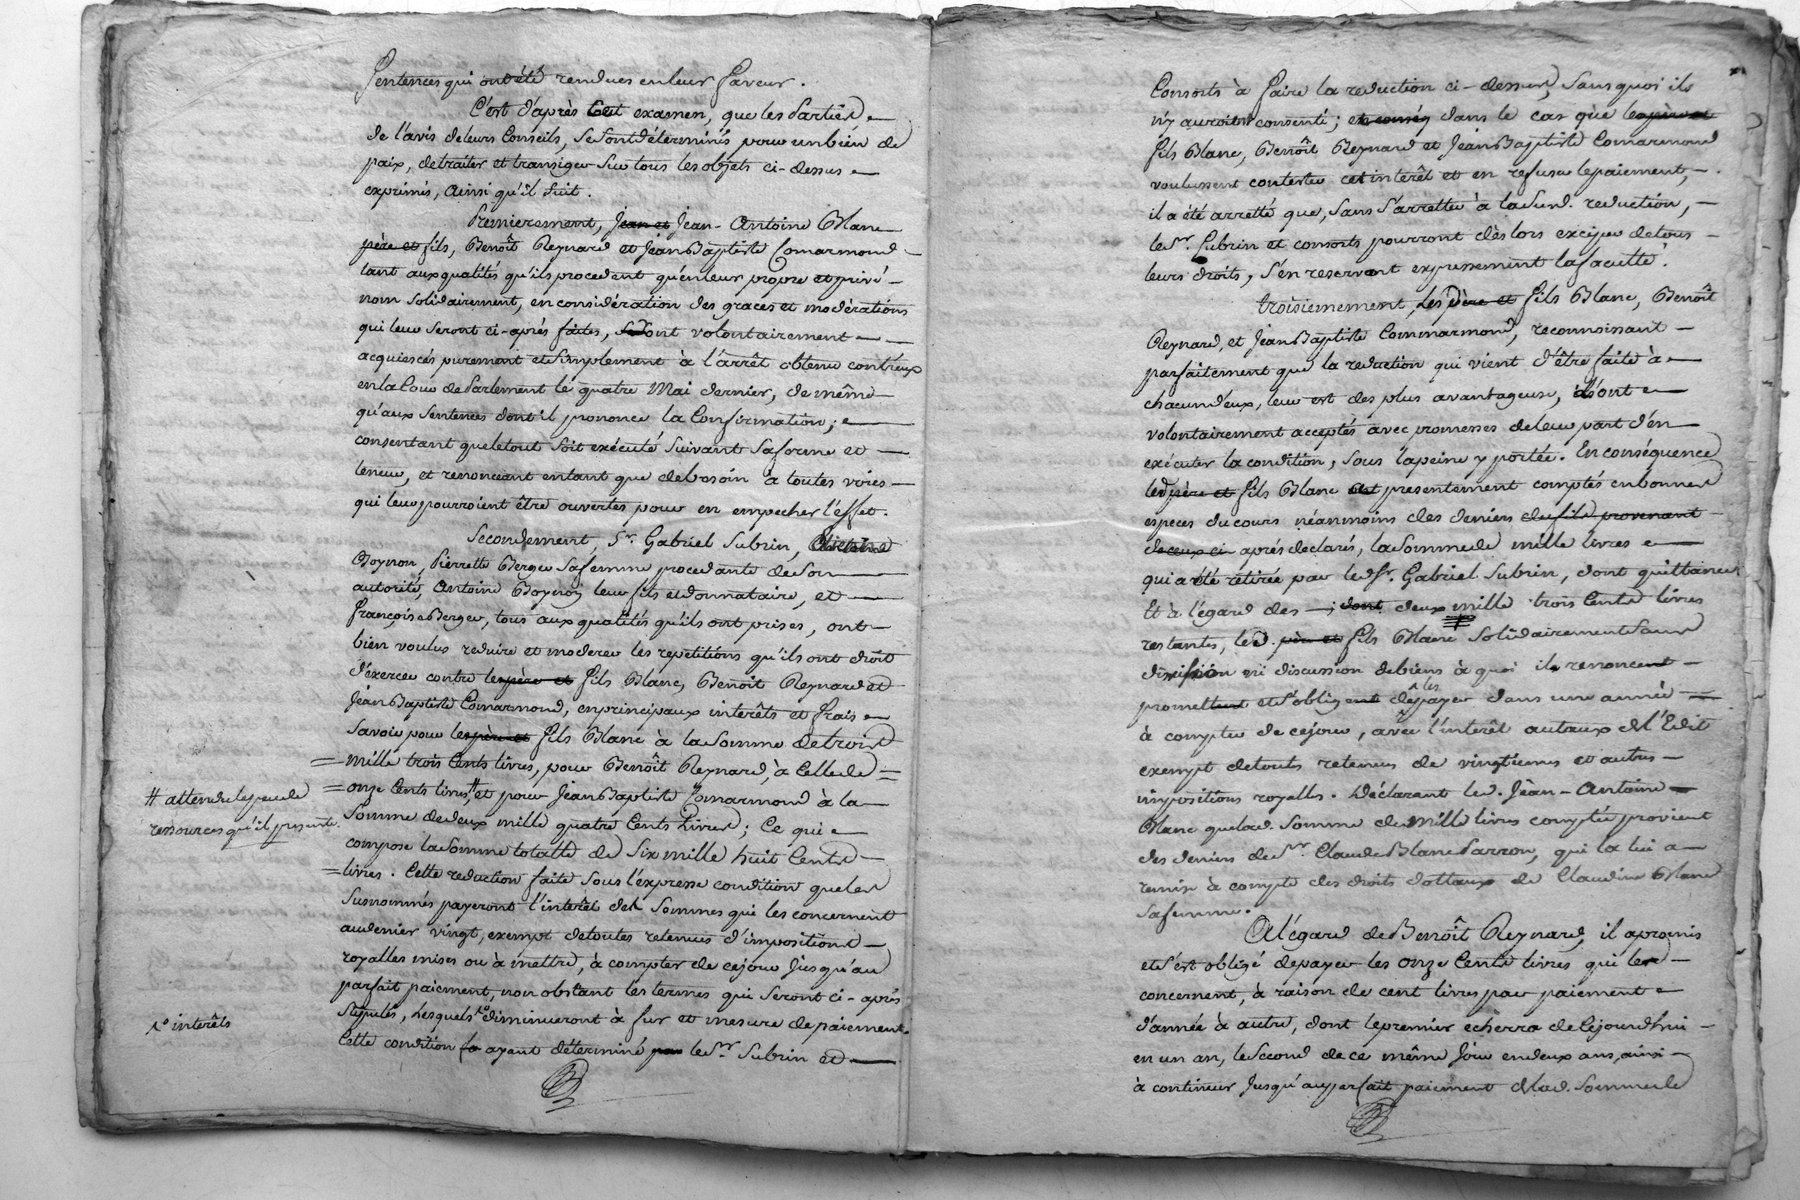 Sentences qui ont été rendues en leur faveur.
C'est d'après tout examen, que les Parties
de l'avis de leurs Conseils, se sont déterminés pour un bien de
paix, de traiter et transiger sur tous les objets ci-dessus
exprimés, ainsi qu'il suit.
Premierement, Jean et Jean-Antoine Blanc
père et fils, Benoît Reynard et Jean Baptiste Comarmond
tant aux qualités qu'ils procedent qu'en leur propre et privé
nom solidairement, en considération des graces et modérations
qui leur seront ci-après faites, se sont volontairement
acquiescés purement et simplement à l'arrêt obtenu contr'eux
en la Cour de Parlement le quatre Mai dernier, de même
qu'aux sentences dont il prononce la Confirmation;
consentant que le tout soit exécuté suivant sa forme et
teneur, et renonceant entant que de besoin à toutes voies
qui leur pourroient être ouvertes pour en empecher l'effet.
Secondement, Sr. Gabriel Subrin,
Boynon, Pierrette Berger sa femme procedante de son
autorité, Antoine Boynon leur fils et donnataire, et
françoise Berger, tous aux qualités qu'ils ont prises, ont
bien voulus reduire et moderer les repetitions qu'ils ont droit
d'exercer contre les père et fils Blanc, Benoît Reynard et
Jean Baptiste Comarmond, en principaux interêts et frais
savoir pour les père et fils Blanc à la somme de trois
mille trois Cents livres, pour Benoît Reynard, à Celle de
# attendu le peu de
onze Cents livres # et pour Jean Baptiste Comarmond à la
ressources qu'il presente.
Somme de deux mille quatre Cents Livres; Ce qui
compose la Somme totalle de Six mille huit Cents
livres. Cette reduction faite sous l'expresse condition que les
susnommés payeront l'interêt des sommes qui les concernent
au denier vingt, exempt de toutes retenues d'impositions
royalles mises ou à mettre, à compter de ce jour jusqu'au
parfait paiement, non obstant les termes qui seront ci-après
stipulés, lesquels diminueront à fur et mesure de paiement.
interêts
Cette condition ayant déterminé le Sr. Subrin et
Consorts à faire la reduction ci-dessus, sans quoi ils
n'y auroient consenti; dans le cas où les père et
fils Blanc, Benoît Reynard et Jean Baptiste Comarmond
voulussent contester cet interêt et en refuser le paiement,
il a été arretté que, sans s'arretter à la susd. reduction,
le Sr. Subrin et consorts pourront dès lors exciper de tous
leurs droits, s'en reservant expressement la faculté.
troisiemement, Les père et fils Blanc, Benoît
Reynard, et Jean Baptiste Commarmond, reconnoissant
parfaitement que la reduction qui vient d'être faite à
chacun d'eux, leur est des plus avantageuse, l'ont
volontairement acceptés avec promesses de leur part d'en
exécuter la condition, sous la peine y portée. En conséquence
lesd père et fils Blanc presentement comptés en bonnes
especes du cours néanmoins des deniers du fils provenant
de ceux ci après declarés, la somme de mille livres
qui a été retirée par led Sr. Gabriel Subrin, dont quittance
Et à l'égard des dont deux mille trois Cents livres
restantes, led. père et fils Blanc solidairement sans
division ni discussion de biens à quoi ils renoncent
promettent et s'obligent de les payer dans une année
à compter de ce jour, avec l'interêt au taux de l'Edit
exempt de touts retenues de vingtiemes et autres
impositions royalles. Déclarant led. Jean-Antoine
Blanc que lad. somme de mille livres comptée provient
des deniers de Sr. Claude Blanc Parron, qui la lui a
remise à compte des droits dottaux de Claudine Blanc
sa femme.
A l'égard de Benoît Reynard, il a promis
et s'est obligé de payer les onze Cents livres qui les
concernent, à raison de cent livres par paiement
d'année à autre, dont le premier écherra de Cejourd'hui
en un an, le Second de ce même jour en deux ans, ainsi
à continuer jusqu'au parfait paiement de lad. somme de